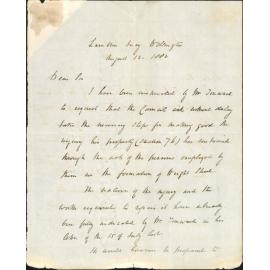 Lambton Quay Wellington
August 12. 1882
Dear Sir
I have been instructed by Mr
to request that the Council will without delay
take the necessary steps for making good the
injury his property (Section 76) has sustained
through the acts of the persons employed by
them in the formation of Wright Street.
The nature of the injury and the
works requisite to repair it have already
been fully indicated by Mr in his
letter of the 15th of July last.
He would however be prepared to